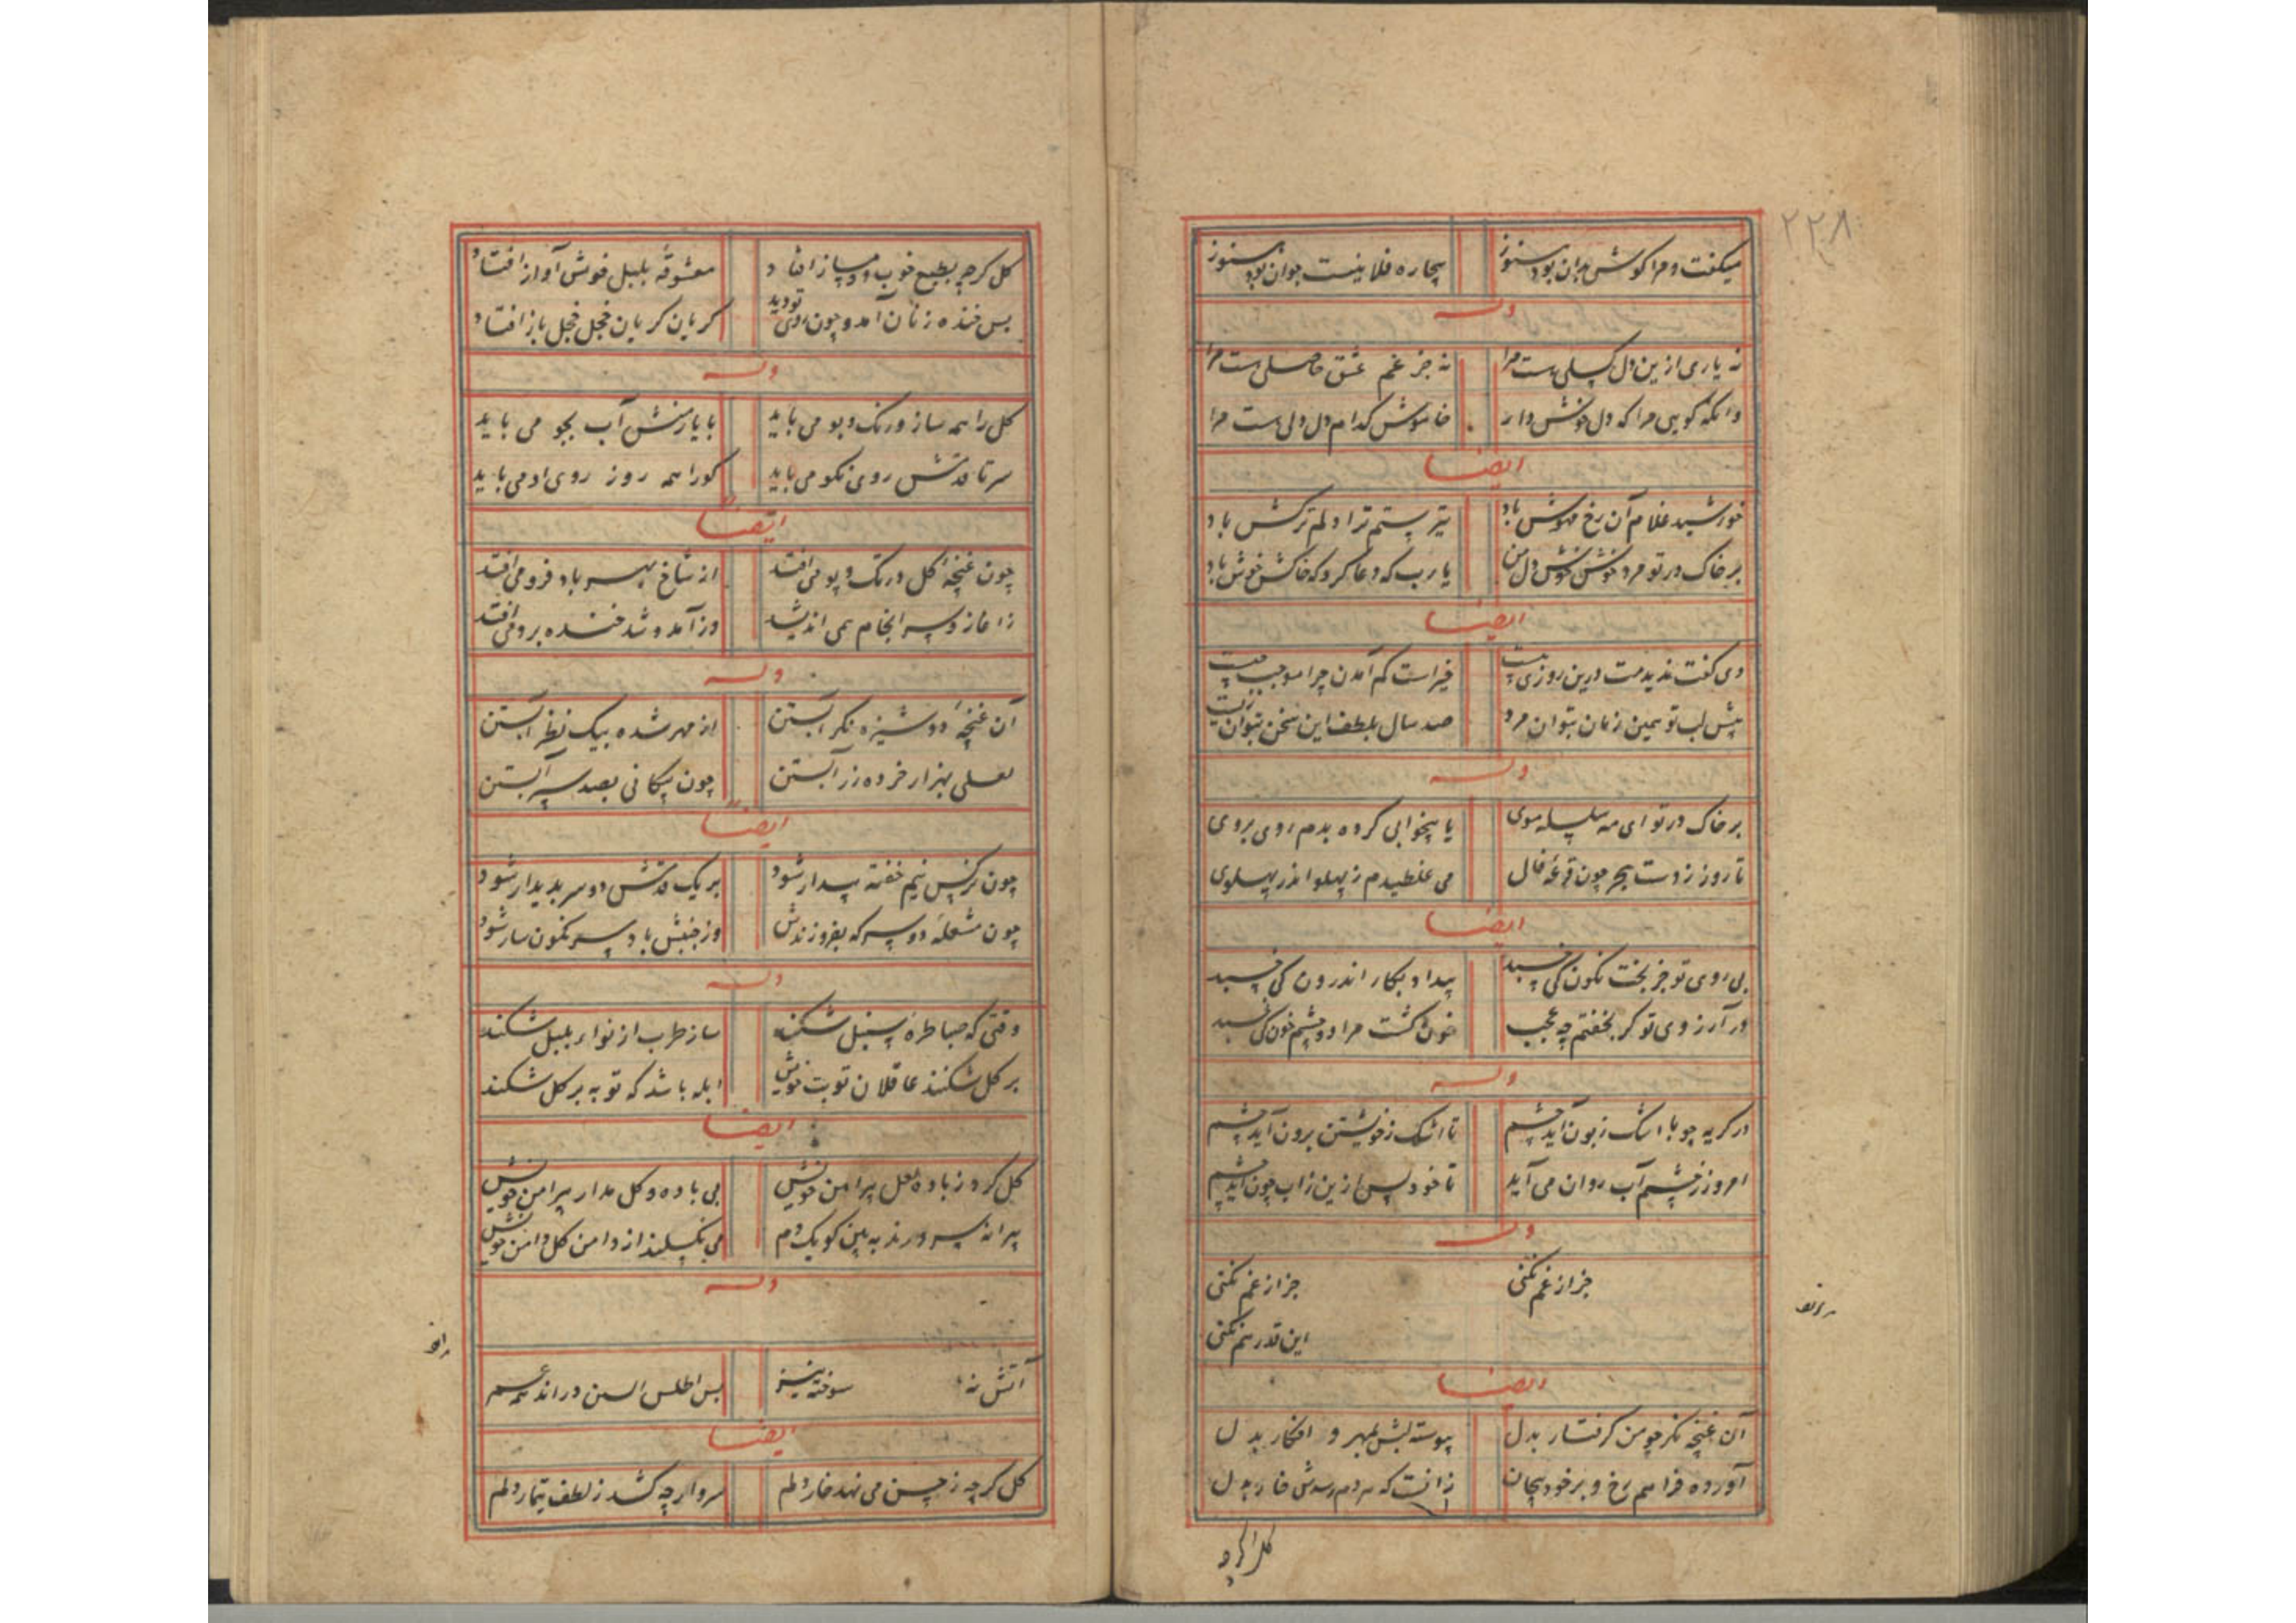 ۲۲۸
میکفت و مرا کوش بدان بود هنوز بیچاره فلانیست جوان بود هنوز
وله
نه یاری ازین دل کسلی هست مرا نه جز غم عشق حاصلی هست مرا
وانکه کویی مرا که دل خوش دار خاموش کدام دل دلی هست مرا
ایضا
خورشید غلام آن رخ مهوش باد تیر ستم ترا دلم ترکش باد
بر خاک در تو مرد خوش خوش دل من یا رب که دعا کرد که خاکش خوش باد
ایضا
دی کفت ندیدمت درین روزی بیست خیراست کم آمدن چرا موجب چیست
پیش لب تو همین زمان بتوان مرد صد سال بلطف این سخن بتوان زیست
وله
بر خاک در تو ای مه سلسله موی با بیخوابی کرده بدم روی بروی
تا روز ز دست هجر چون قرعه فال می غلطیدم ز پهلو اندر پهلوی
ایضا
بی روی تو جز بخت نکون کی خسبد بیدا د بکار اندرون کی خسبد
در آرزوی تو کر بخفتم چه عجب خون کشت مرا دو چشم خون کی خسبد
وله
در کریه چو با اشک زبون آید چشم تا اشک ز خویشتن برون آید چشم
امروز ز چشم آب روان می آید تا خود پس ازین ز آب چون آید چشم
وله
جز از غم نکنی جز از غم نکنی
این قدر هم نکنی
ایضا
آن غنچه نکر چو من کرفتار بدل پیوسته لبش بمهر و افکار بدل
آورده فراهم رخ و بر خود پیچان زانست که هر دم رسدش خار بدل
کل کرچه
کل کرچه بطبع خوب و دمساز افتاد معشوقه بلبل خوش آواز افتاد
بس خنده زنان آمد و چون روی تو دید کریان کریان خجل خجل باز افتاد
وله
کل را همه ساز و رنک و بو می باید با یار منش آب بجو می باید
سر تا قدمش روی نکو می باید کورا همه روز روی او می باید
ایضا
چون غنچه کل در تک و پو می افتد از شاخ بهر باد فرو می افتد
ز آغاز و سرانجام همی اندیشد وز آمد و شد خنده برو می افتد
وله
آن غنچه دوشیزه نکر آبستن از مهر شده بیک نظر آبستن
لعلی بهزار خرده زر آبستن چون پیکانی بصد سپر آبستن
ایضا
چون نرکس نیم خفته بیدار شود بر یک قدمش دو سر پدیدار شود
چون مشعله دو سر که بفروزندش وز جنبش باد سر نکون سار شود
وله
وقتی که صبا طره سنبل شکند ساز طرب از نواء بلبل شکند
بر کل شکنند عاقلان توبت خویش ابله باشد که توبه بر کل شکند
ایضا
کل کرد ز باده لعل پیرامن خویش بی باده و کل مدار پیرامن خویش
پیرانه سر ورند به بین کو یک دم می نکسلند از دامن کل دامن خویش
وله
آتش نه سوخته نیز بس اطلس در اندیشم
ایضا
کل کرچه ز چمن می نهد خار دلم سرو ارچه کشد ز لطف تیمار دلم